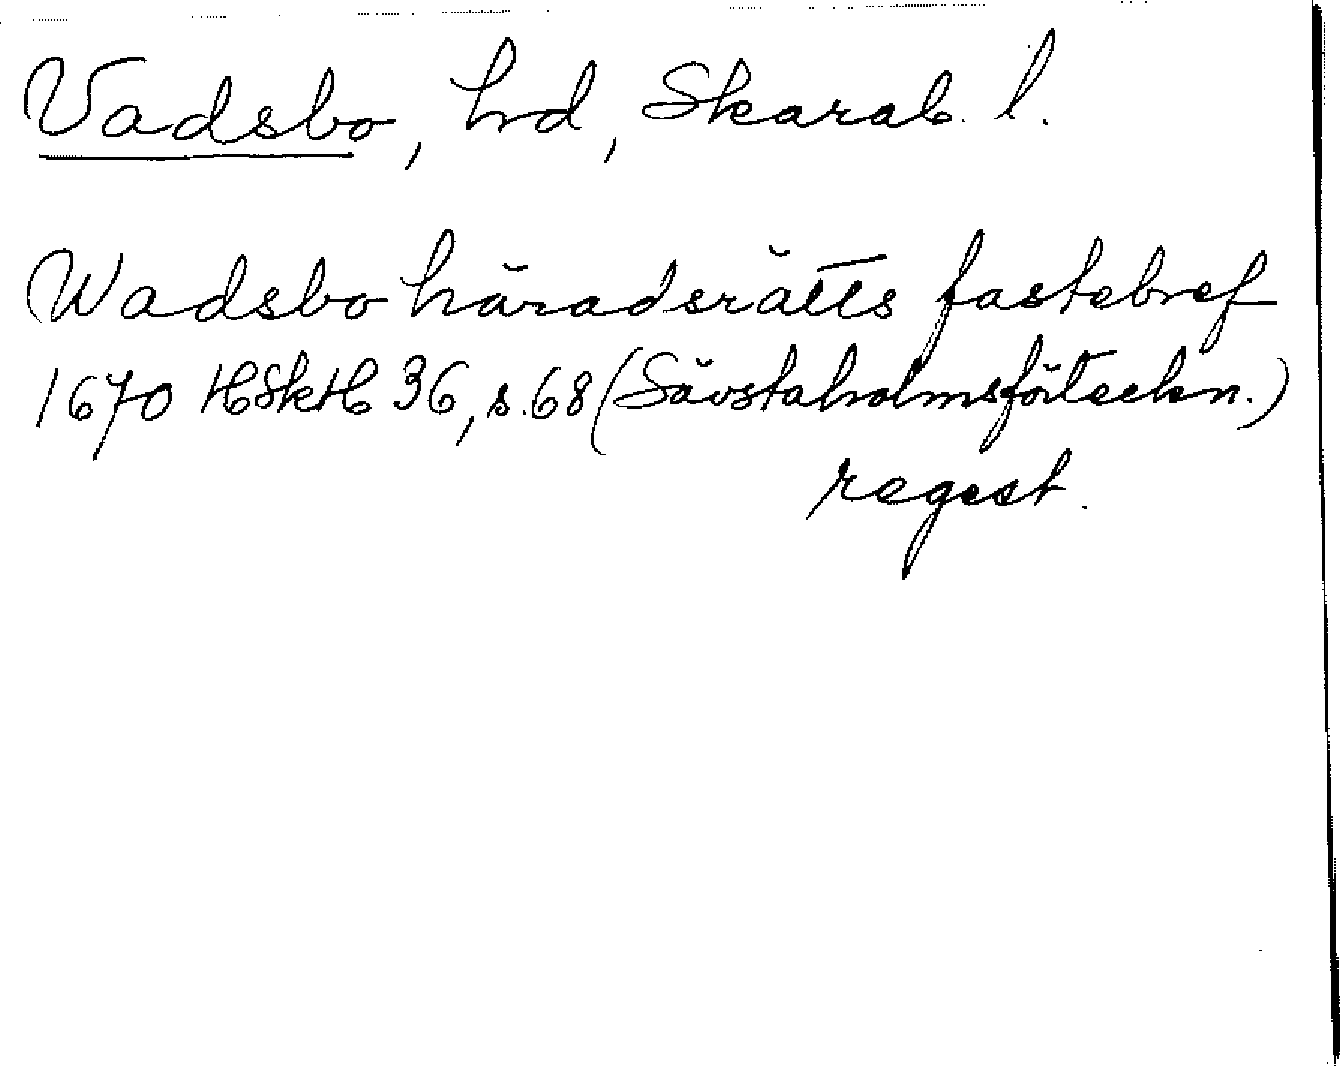 Vadsbo, hrd, Skarab. l.
Wadsbo häradsrätts fastebref
1670 HSkH 36, s. 68 (Sävstaholmsförteckn.)
regest.